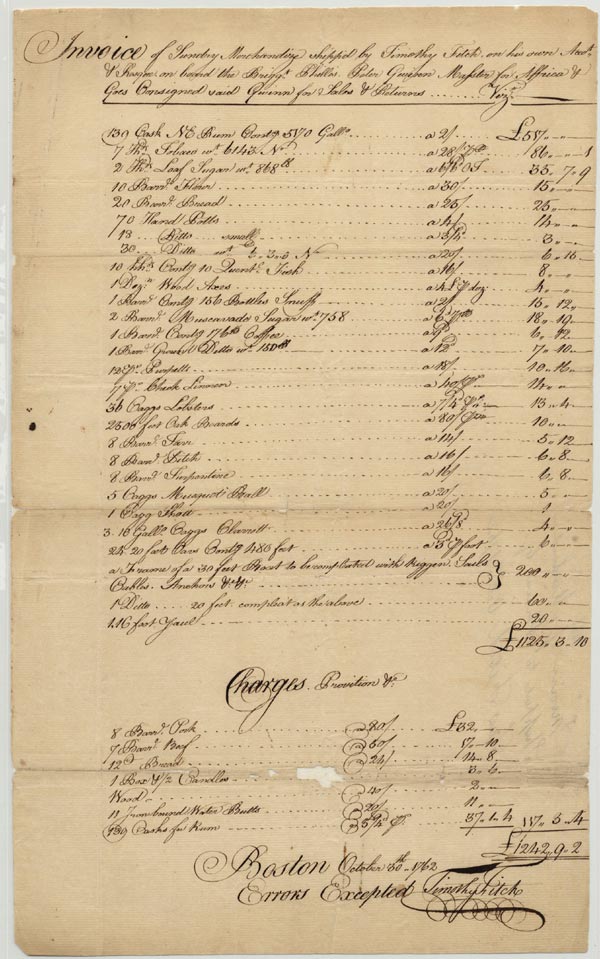 Invoice of Sundry Merchandize shipp'd by Timothy Fitch on his own Accott.
& Risque on board the Brigg. Phillis Peter Gwinn Master for Affrica &
Goes Consigned said Gwinn for Sales & Returns ...... Vizt.
139 Cask NE Rum Contg 5170 Gallo. ... a 2/ ... £517 " "
7 Hhd. Tobaco wt. 6143 Nt ... 86 " " 1
2 Hhd. Loaf Sugar wt. 868 lb ... 35 " 7 " 9
10 Barrl. Flour ... a 30/ ... 15 " "
20 Barrl. Bread ... a 25/ ... 25 " "
70 Hand Botts ... a 4/ ... 14 " "
18 Ditto small ... a 3/4 ... 3 " "
30 Ditto ... a 20/ ... 6 " 15
10 Contg 10 Quentl. Fish ... a 16/ ... 8 " "
1 Dozn. Wood Axes ... 4 " "
1 Barrl Contg 156 Bottles Snuff ... a 2/ ... 15 " 12 "
2 Barrl. Muscavado Sugar wt. 758 ... 18 " 19
1 Barrl. Contg 176 lb Coffee ... a 9d ... 6 " 12
1 Barrl. Ground Ditto wt. 150 lb ... a 12d ... 7 " 10
12 Ps. ... a 18/ ... 10 " 16
7 Ps. Check Linnen ... a 40/ ... 14 " "
36 Caggs Lobsters ... a 7/4 ... 13 " 4
2506 feet Oak Boards ... a 80/ ... 10 " "
8 Barrl. Tarr ... a 14/ ... 5 " 12
8 Barrl. Pitch ... a 16/ ... 6 " 8
8 Barrl. Turpentine ... a 16/ ... 6 " 8
5 Caggs Musquet Ball ... a 20/ ... 5 " "
1 Cagg Shott ... a 20/ ... 1
3. 10 Gallo. Caggs Clarrett ... a 26/8 ... 4 " "
24. 20 foot Oars Contg 480 feet ... a 3d P foot ... 6 "
a Frame of a 30 feet Boat to be compleated with Riggin. Sails
Cables. Anchors &c. &c. } 200 " "
1 Ditto ... 20 feet compleat as the above ... 60 " "
1.16 foot Yaul ... 20 "
£1125 " 3 " 10
Charges. Provition &c.
8 Barrl. Pork ... @ 80/ ... £32 "
7 Barrl. Beef ... @ 50/ ... 17 " 10
12 d. Bread ... @ 24/ ... 14 " 8
1 Box Candles ... 3 " 6
Wood ... @ 40/ ... 2 "
11 Ironbound Water Butts ... @ 20/ ... 11 "
139 Casks for Rum ... 37 " 1 " 4 117 " 5 " 4
£1242 " 9 " 2
Boston October 30th. 1762
Errors Excepted Timothy Fitch